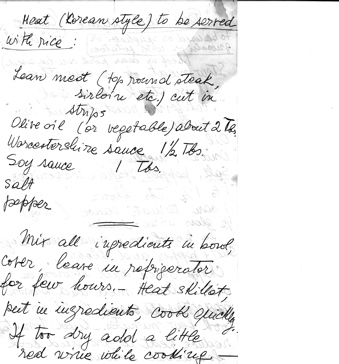 Meat (Korean style) to be served
with rice:
Lean meat (top round steak,
sirloin etc.) cut in
strips
Olive oil (or vegetable) about 2 Tbs.
Worcestershire sauce 1½ Tbs.
Soy sauce 1 Tbs.
salt
pepper
Mix all ingredients in bowl,
cover, leave in refrigerator
for few hours. – Heat skillet,
put in ingredients, cook quickly.
If too dry add a little
red wine while cooking —